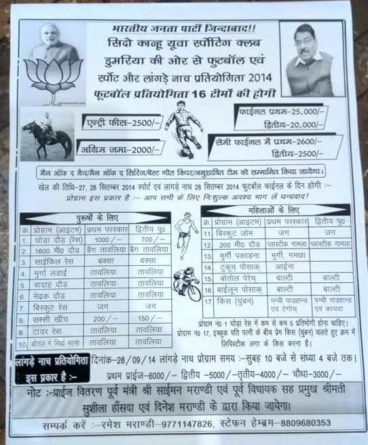 भारतीय जनता पार्टी जिन्दाबाद!!
सिदो कान्हू युवा स्पोर्टिंग क्लब
डुमरिया की ओर से फुटबॉल एवं
स्पोर्ट और लांगड़े नाच प्रतियोगिता 2014
फूटबॉल प्रतियोगिता 16 टीमों की होगी
एन्ट्री फीस-2500/-
अग्रिम जमा-2000/-
फाईनल प्रथम-25,000/-
द्वितीय-20,000/-
सेमी फाईनल में प्रथम-2600/-
द्वितीय-2500/-
मैन ऑफ द मैच/मैन ऑफ द सिरिज/बेस्ट गोल किपर/अनुशासित टीम को सम्मानित किया जायेगा।
खेल की तिथि-27, 28 सितम्बर 2014 स्पोर्ट एवं लांगड़े नाच 28 सितम्बर 2014 फुटबॉल फाईनल के दिन होगी :-
प्रोग्राम इस प्रकार है :- आप सभी के लिए निःशुल्क अवश्य भाग लें धन्यवाद!
पुरूषों के लिए
क्र. प्रोग्राम (आइटम) प्रथम परस्कार द्वितीय पु0
1 घोडा दौड़ (रेस) 1000/- 700/-
2 1600 मी0 दौड बैग तावलिया बैग तावलिया
3 साईकिल रेस बक्सा बक्सा
4 मुर्गा लडाई तावलिया तावलिया
5 दौड तावलिया तावलिया
6 मेढ़क दौड तावलिया तावलिया
7 बिस्कुट रेस जग जग
8 रास्सी खीच 200/- 150/-
9 टायर रेस तावलिया तावलिया
10 तावलिया तावलिया
महिलाओं के लिए
क्र प्रोग्राम (आइटम) प्रथम परस्कार द्वितीय पु0
11 बिस्कुट जोम जग जग
12 200 मी0 दौड प्लास्टीक गामला प्लास्टीक गामला
13 मुर्गी पकाडना मुर्गी, गमछा
14 टुकुच पोसाक आईना
15 बोतोल पेरेच् बाल्टी बाल्टी
16 बाईलून पोसाक् बाल्टी बाल्टी
17 किस (चुंबन)
प्रोग्राम न0 1 घोडा रेस में कम से कम 5 प्रतिभोगी होना चाहिए।
प्रोग्राम न0 17, इच्छुक पति पत्नी के बीच प्रेम किस (चुंबन) चलते हुए क्रम में
लिपिस्टीक लगा के किस करना है।
लांगड़े नाच प्रतियोगिता दिनांक-28/09/14 लांगड़े नाच प्रोग्राम समय :-सुबह 10 बजे से संध्या 4 बजे तक।
इस प्रकार है :- प्रथम प्राईज-6000/- द्वितीय -5000/-तृतीय-4000/- चौथा-3000/-
नोट :-प्राईज वितरण पूर्व मंत्री श्री साईमन मराण्डी एवं पूर्व विधायक सह प्रमुख श्रीमती
सुशीला हाँसदा एवं दिनेश मराण्डी के द्वारा किया जायेगा।
सम्पर्क करें :-रमेश मराण्डी-9771147826, स्टेफन हेम्ब्रम-8809680353